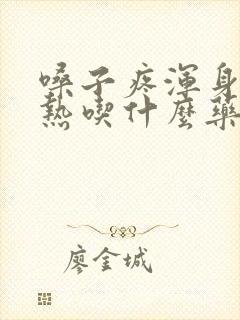 嗓子疼渾身
熱喫什麼藥
廖金城